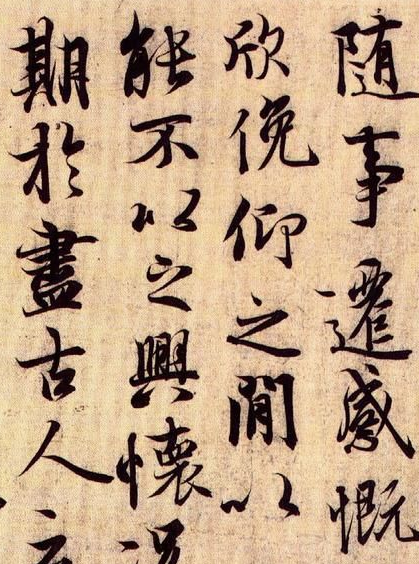 随事遷感慨
欣俛仰之間以
能不以之興懷况
期於盡古人云